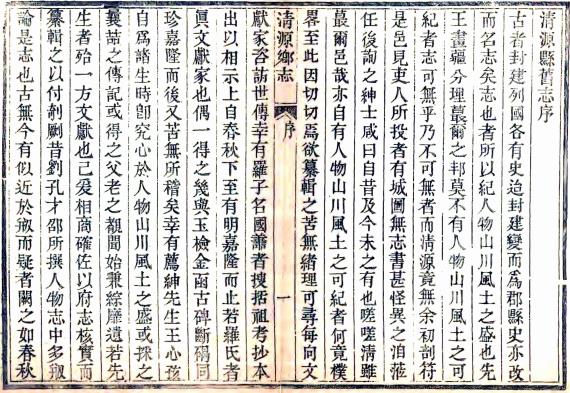 清源縣舊志序
古者封建列國各有史迨封建變而爲郡縣史亦改
而名志矣志也者所以紀人物山川風土之盛也先
王畫疆分理蕞爾之邦莫不有人物山川風土之可
紀者志可無乎乃不可無者而清源竟無余初剖符
是邑見吏人所投者有城圖無志書甚怪異之洎蒞
任後詢之紳士咸曰自昔及今未之有也嗟嗟清雖
蕞爾邑哉亦自有人物山川風土之可紀者何竟樸
畧至此因切切焉欲纂輯之苦無緒理可尋每向文
清源鄉志 序 一
獻家咨訪世傳幸有羅子名國士者搜括祖考抄本
出以相示上自春秋下至有明嘉隆而止若羅氏者
眞文獻家也偶一得之幾與玉檢金函古碑斷碣同
珍嘉隆而後又苦無所稽矣幸有薦紳先生王心孩
自爲諸生時卽究心於人物山川風土之盛或採之
襄喆之傳記或得之父老之覩聞始兼綜靡遺若先
生者殆一方文獻也已爰相商確佐以府志核實而
纂輯之以付剞劂昔劉孔才邵所撰人物志中多叛
論是志也古無今有似近於叛而疑者闕之如春秋